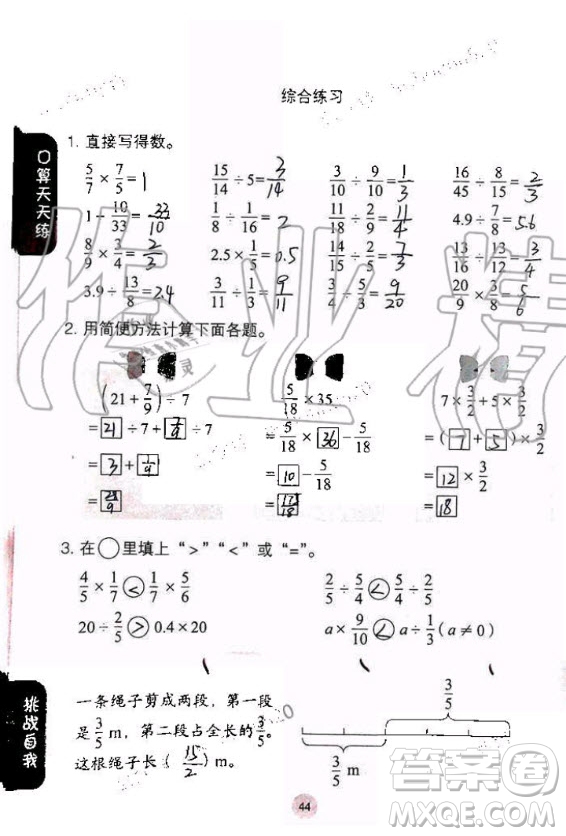 综合练习
口算天天练
1. 直接写得数。
5/7 × 7/5 = 1   15/14 ÷ 5 = 3/14   3/10 ÷ 9/10 = 1/3   16/45 ÷ 8/15 = 2/3
1 ÷ 10/33 = 33/10   1/8 ÷ 1/16 = 2   11/18 ÷ 2/9 = 11/4   4.9 ÷ 7/8 = 5.6
8/9 × 3/4 = 2/3   2.5 × 1/5 = 0.5   7/3   13/16 ÷ 13/12 = 3/4
3.9 ÷ 13/8 = 2.4   3/11 ÷ 1/3 = 9/11   3/4 ÷ 5/3 = 9/20   20/9 × 3/8 = 5/6
2. 用简便方法计算下面各题。
(21 + 7/9) ÷ 7   5/18 × 35   7 × 3/2 + 5 × 3/2
= 21 ÷ 7 + 7/9 ÷ 7   = 5/18 × 36 − 5/18   = (7 + 5) × 3/2
= 3 + 1/9   = 10 − 5/18   = 12 × 3/2
= 28/9   = 175/18   = 18
3. 在○里填上“>”“<”或“=”。
4/5 × 1/7 < 1/7 × 5/6   2/5 ÷ 5/4 < 5/4 ÷ 2/5
20 ÷ 2/5 > 0.4 × 20   a × 9/10 < a ÷ 1/3 (a ≠ 0)
挑战自我
一条绳子剪成两段，第一段
是 3/5 m，第二段占全长的 3/5。
这根绳子长 ( 15/2 ) m。
3/5
3/5 m
44
作业精灵
答案圈
MXQE.COM